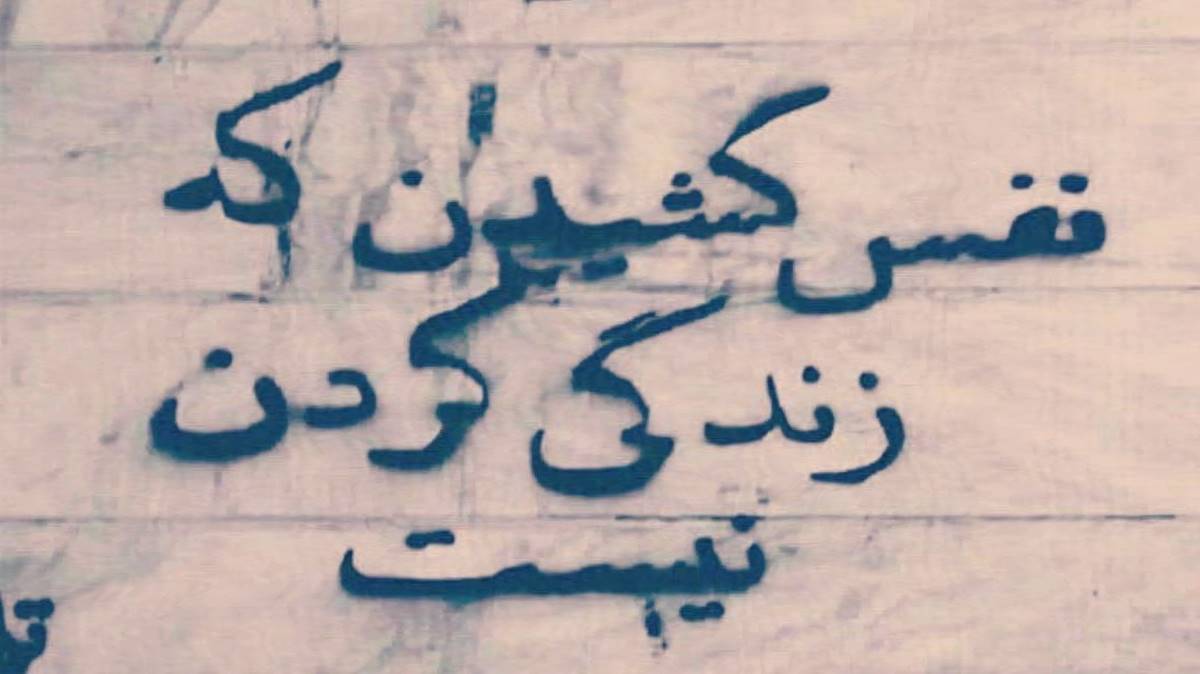 قفس کشیدن که
زندگی کردن
نیست